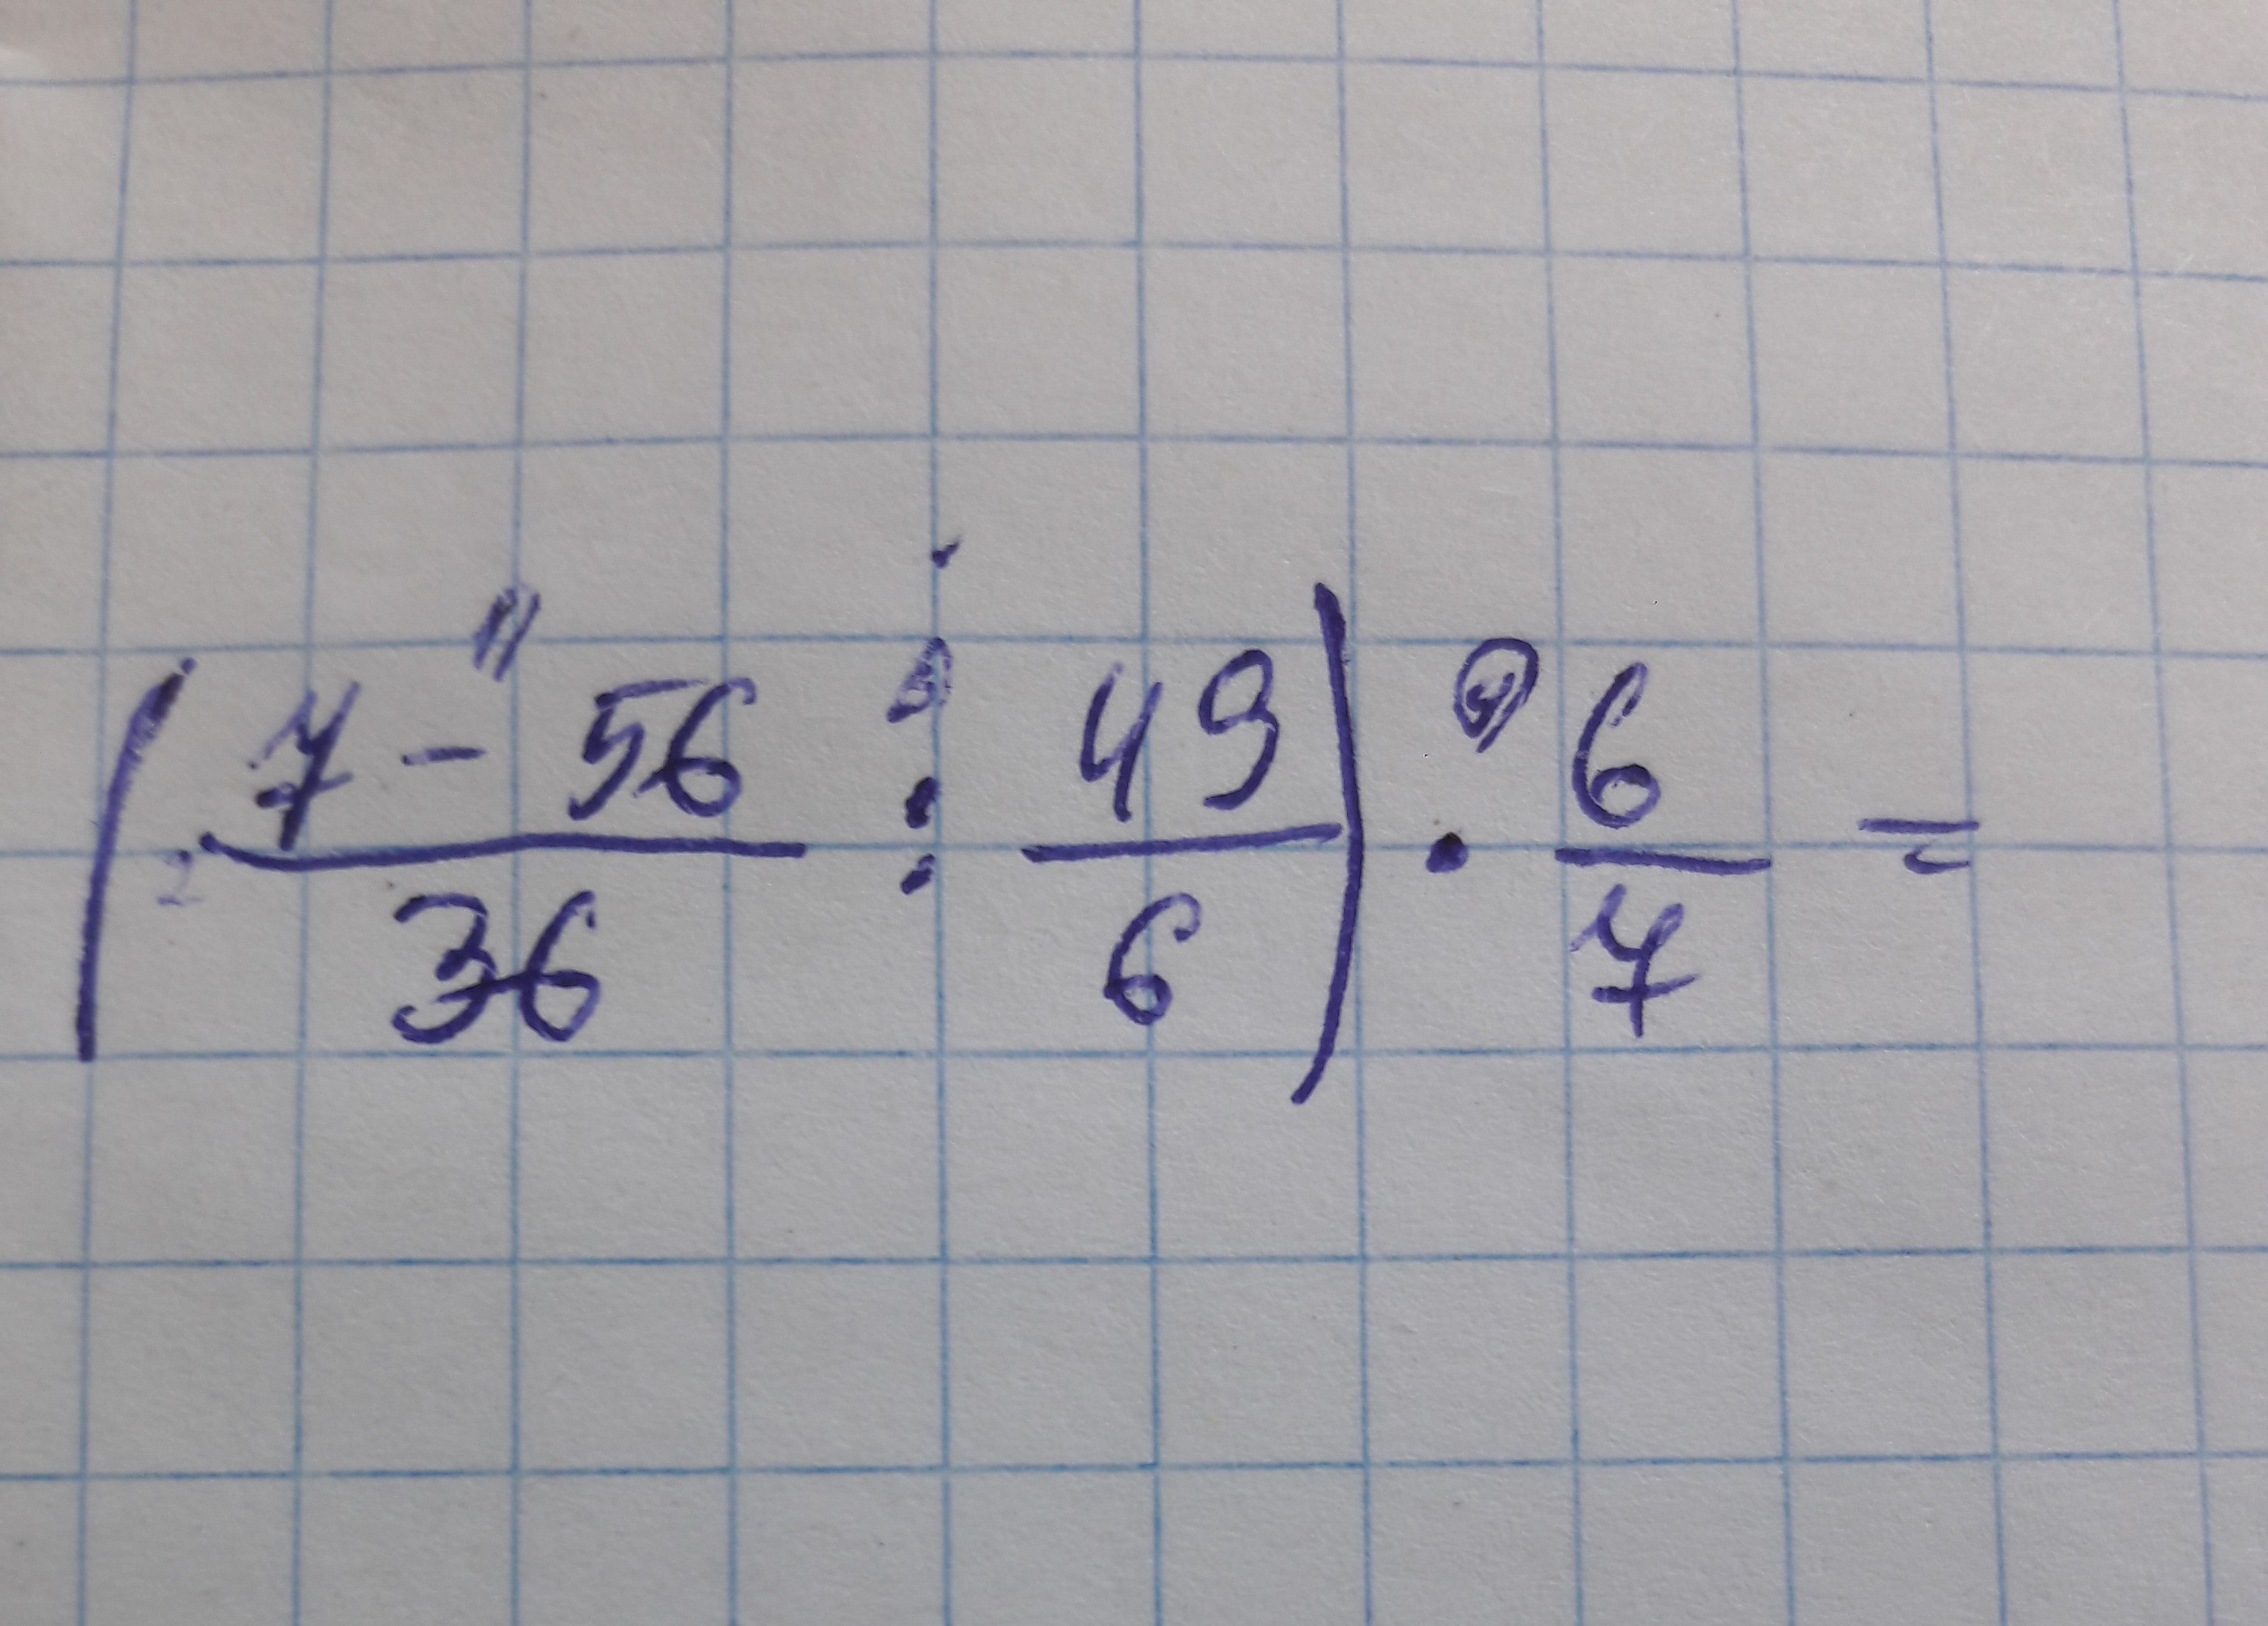 ( 7 - 56 / 36 : 49 / 6 ) · 6 / 7 =